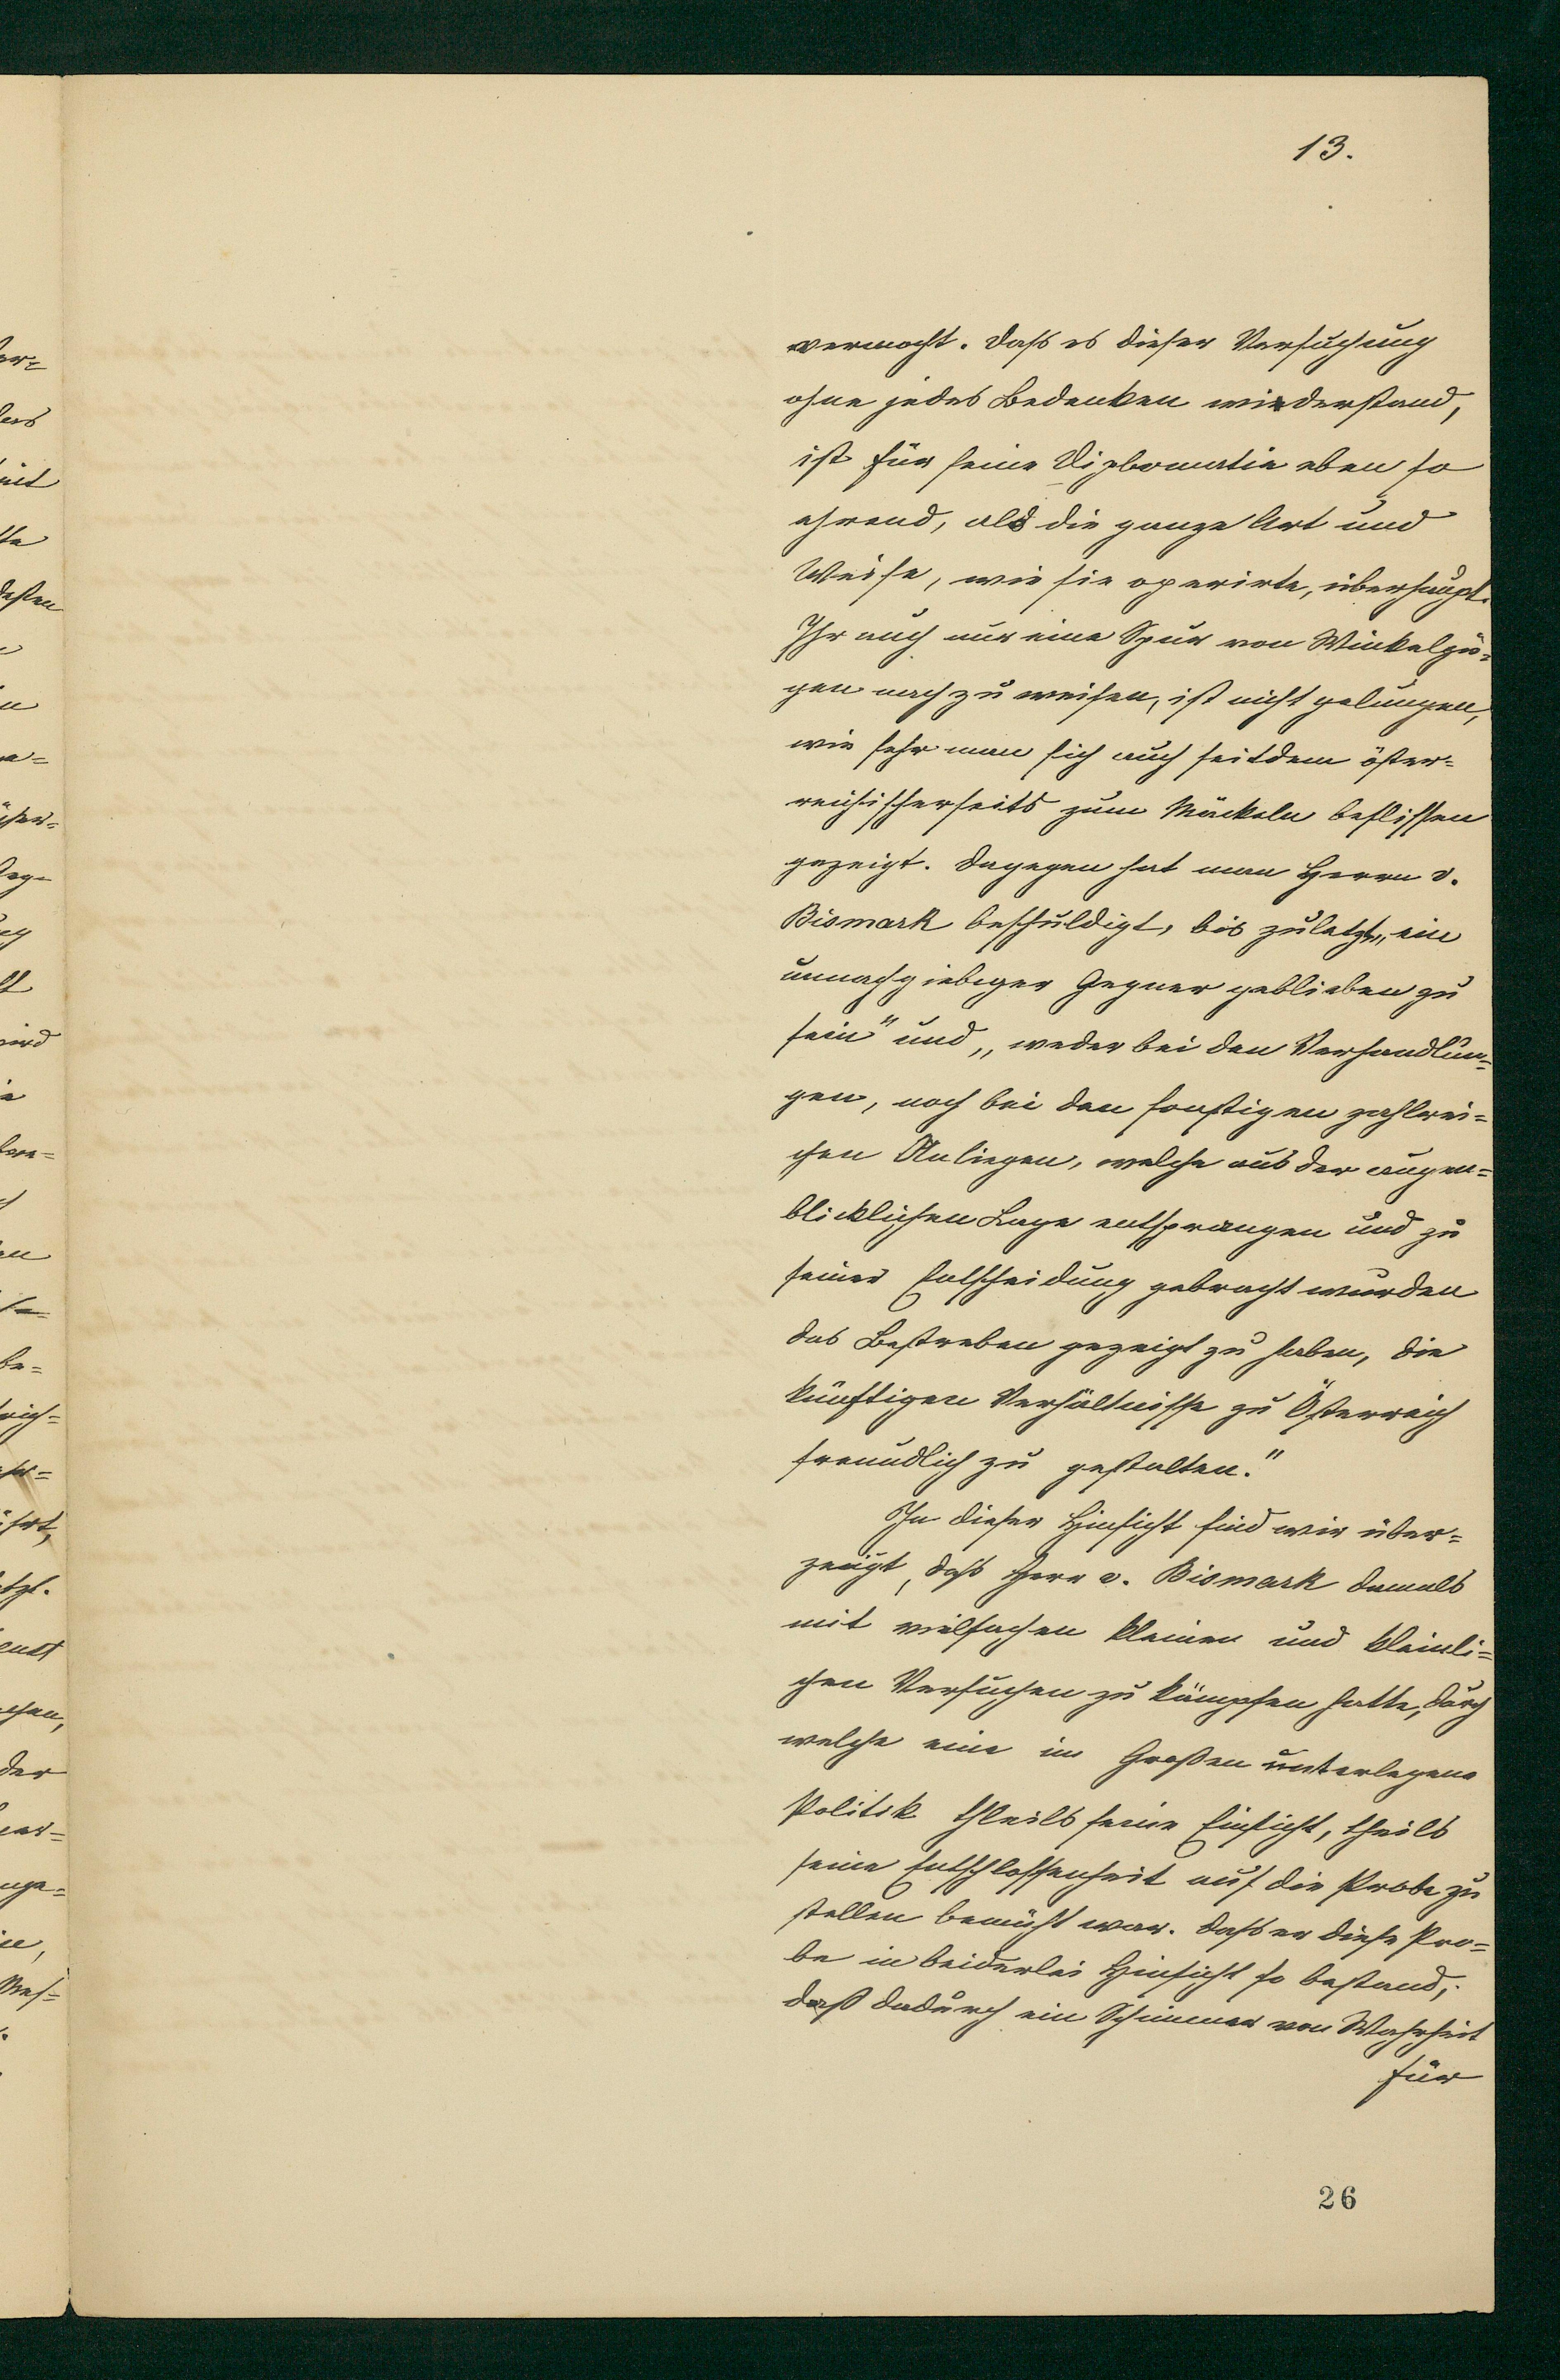 13.
vermocht. Dass es dieser Versuchung
ohne jedes Bedenken wiederstand,
ist für seine Diplomatie eben so
ehrend, als die ganze Art und
Weise, wie sie operirte, überhaupt.
Ihr auch nur eine Spur von Winkelzü-
gen nach zu weisen, ist nicht gelungen,
wie sehr man sich auch seitdem öster-
reichischerseits zum Mäckeln beflissen
gezeigt. Dagegen hat man Herrn v.
Bismark beschuldigt, bis zuletzt „ein
unnachgiebiger Gegner geblieben zu
sein" und „weder bei den Verhandlun-
gen, noch bei den sonstigen zahlrei-
chen Anliegen, welche aus der augen-
blicklichen Lage entsprangen und zu
seiner Entscheidung gebracht wurden
das Bestreben gezeigt zu haben, die
künftigen Verhältnisse zu Österreich
freundlich zu gestalten."
In dieser Hinsicht sind wir über-
zeugt, dass Herr v. Bismark damals
mit vielfachen kleinen und kleinli-
chen Versuchen zu kämpfen hatte, durch
welche eine im Großen unterlegene
Politik theils seine Einsicht, theils
seine Entschlossenheit auf die Probe zu
stellen bemüht war. Dass er diese Pro-
be in beiderlei Hinsicht so bestand,
daß dadurch ein Schimmer von Wahrheit
für
26